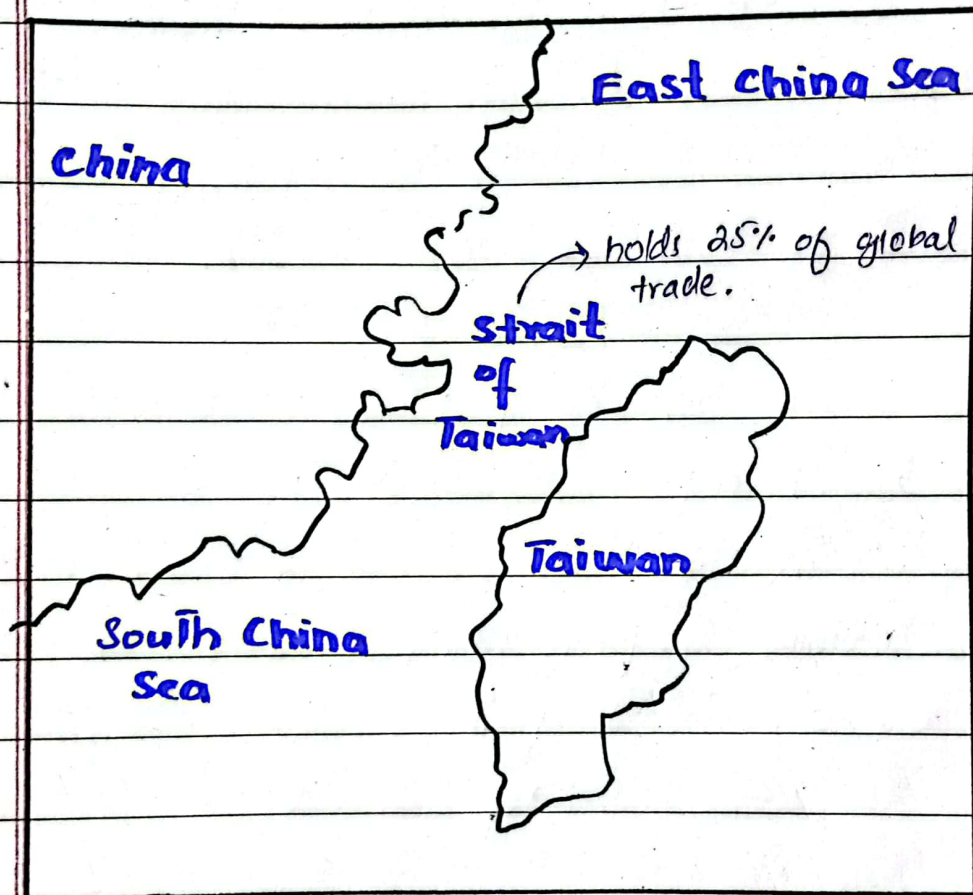 East China Sea
China
holds 25% of global
trade.
Strait
of
Taiwan
Taiwan
South China
Sea